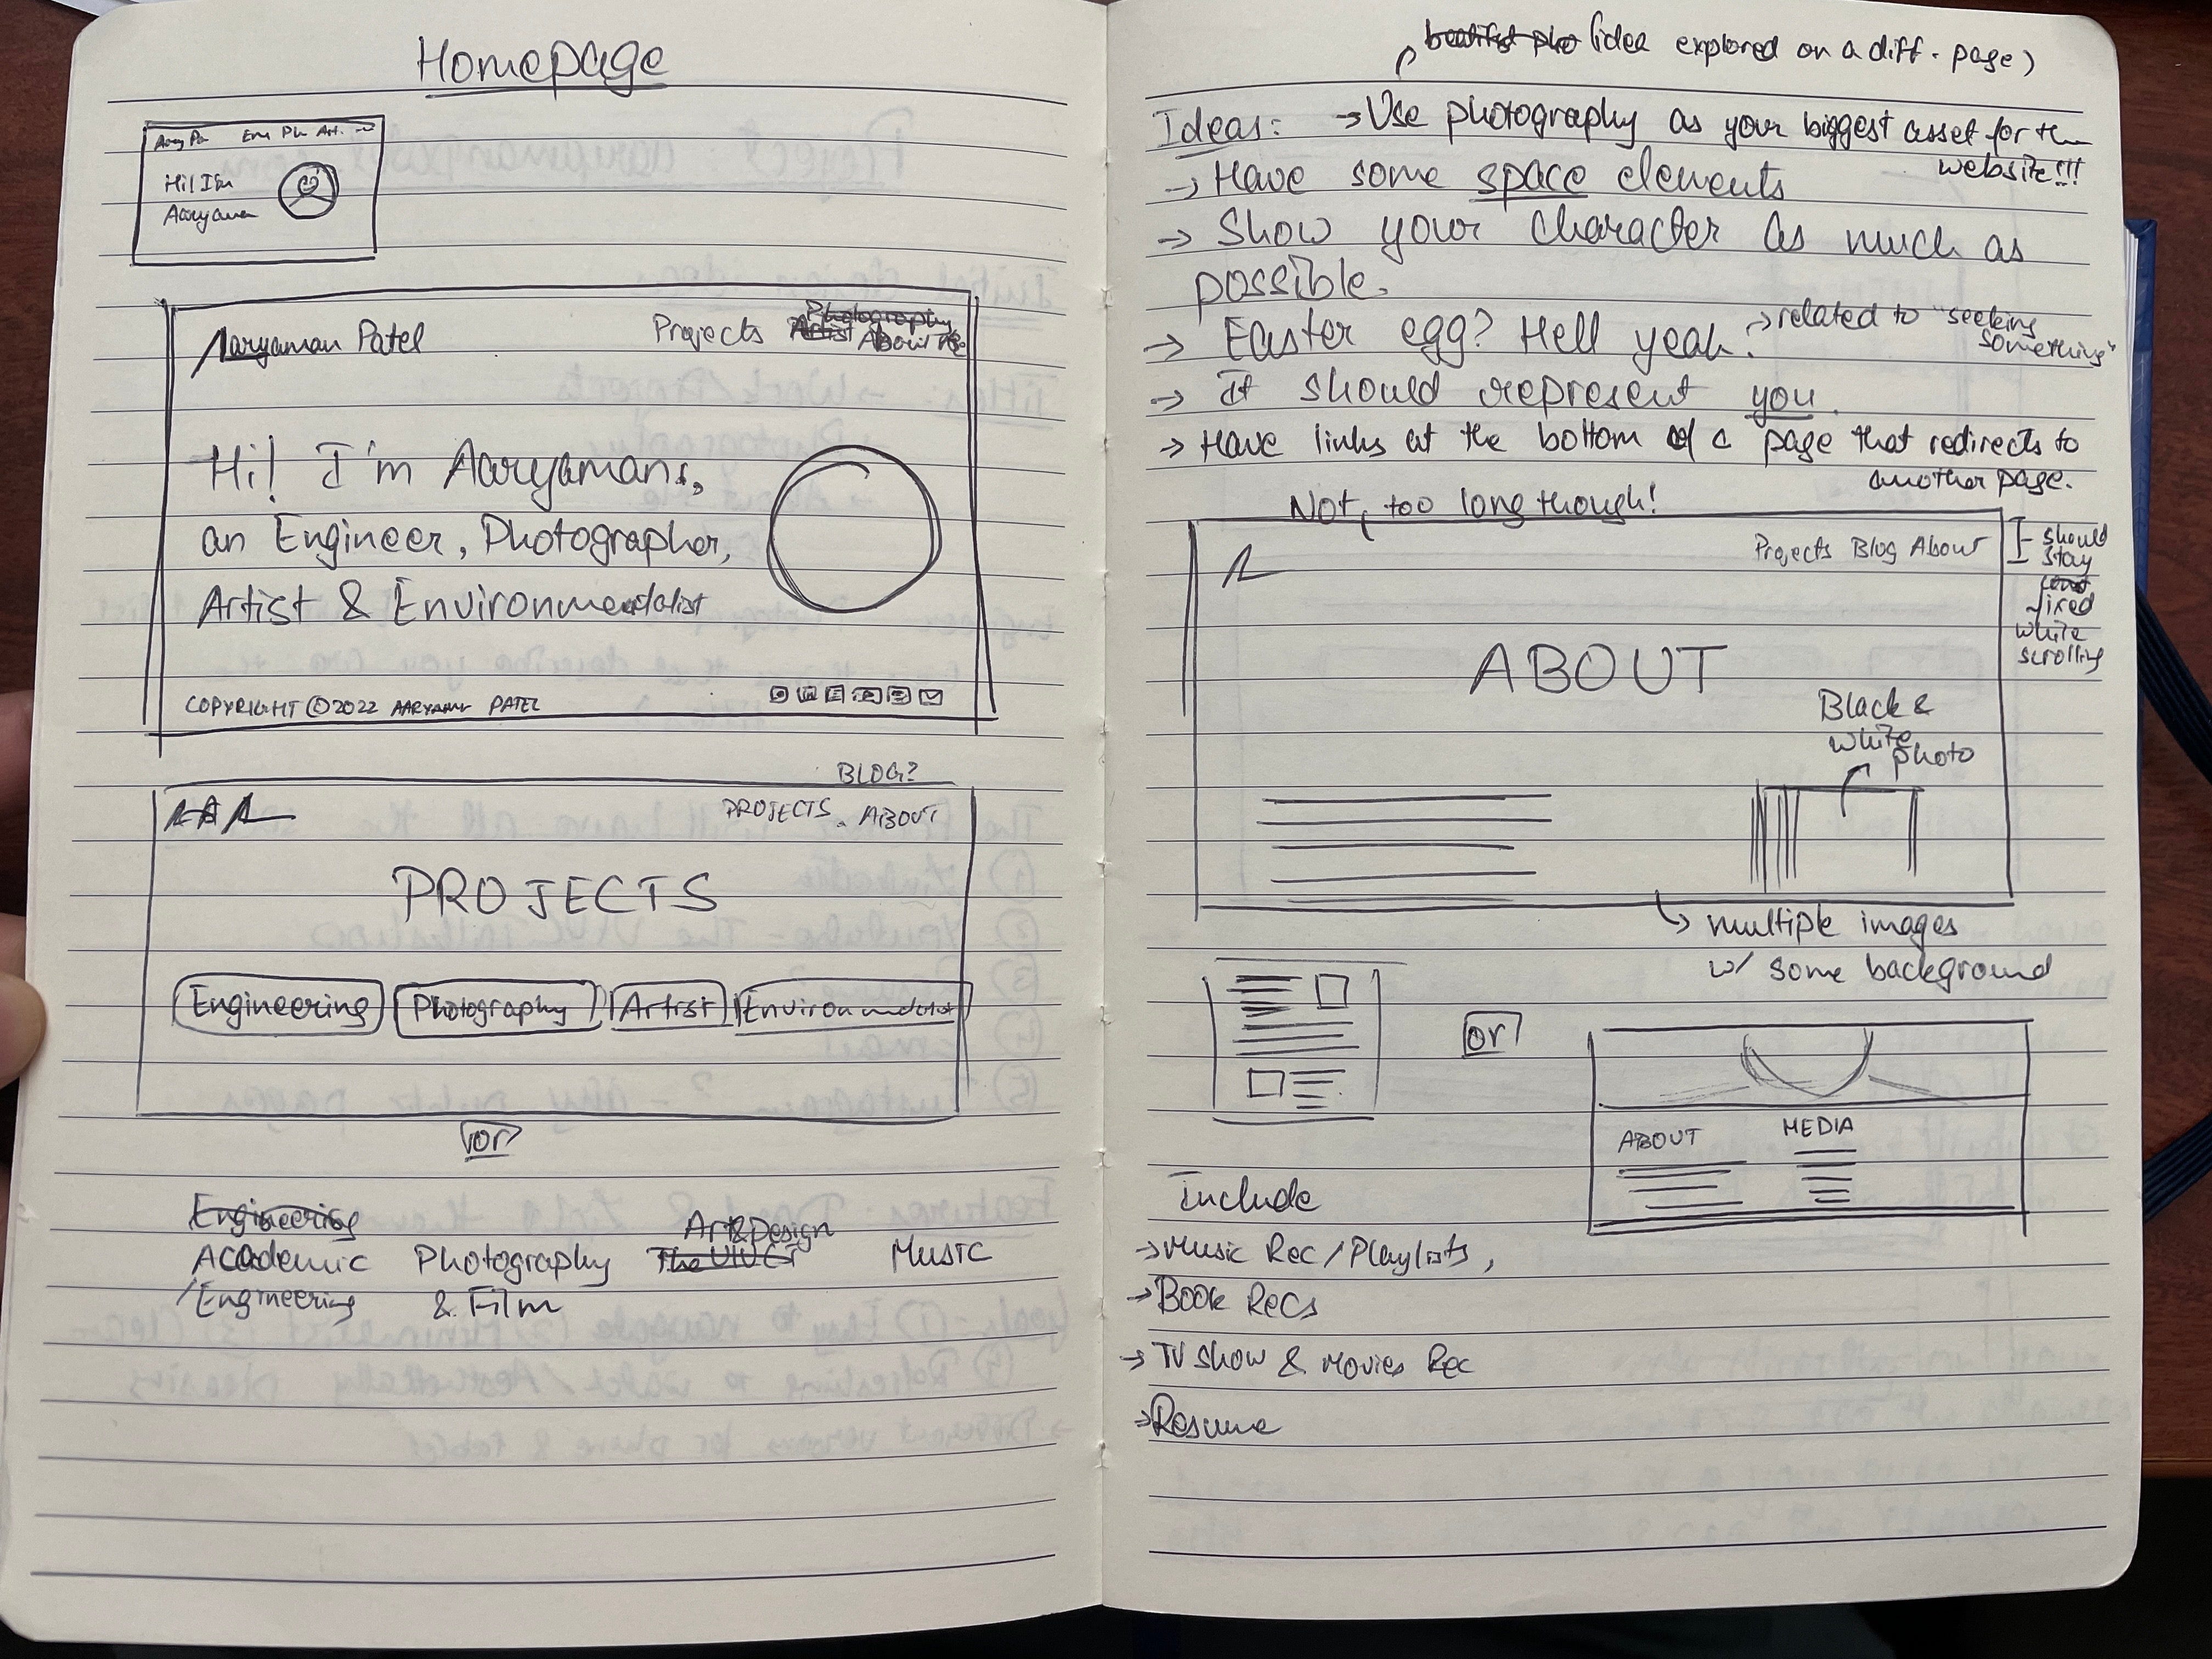 Homepage
Hi! I'm
Aaryaman
Aaryaman Patel
Projects
Photography
Artist About Me
Hi! I'm Aaryaman,
an Engineer, Photographer,
Artist & Environmentalist
COPYRIGHT ©2022 AARYAMAN PATEL
BLOG?
PROJECTS. ABOUT
PROJECTS
Engineering Photography Artist Environmentalist
or
Engineering
Art&Design
Academic Photography Music
/Engineering & Film
(idea explored on a diff. page)
Ideas: → Use photography as your biggest asset for the
website!!!
→ Have some space elements
→ Show your character as much as
possible.
→ Easter egg? Hell yeah. → related to "seeking
something"
→ It should represent you.
→ Have links at the bottom of a page that redirects to
another page.
Not too long though!
Projects Blog About
should
stay
fixed
while
scrolling
ABOUT
Black &
white
photo
multiple images
w/ some background
or
ABOUT MEDIA
Include
→ Music Rec/Playlists,
→ Book Recs
→ TV Show & Movies Rec
→ Resume